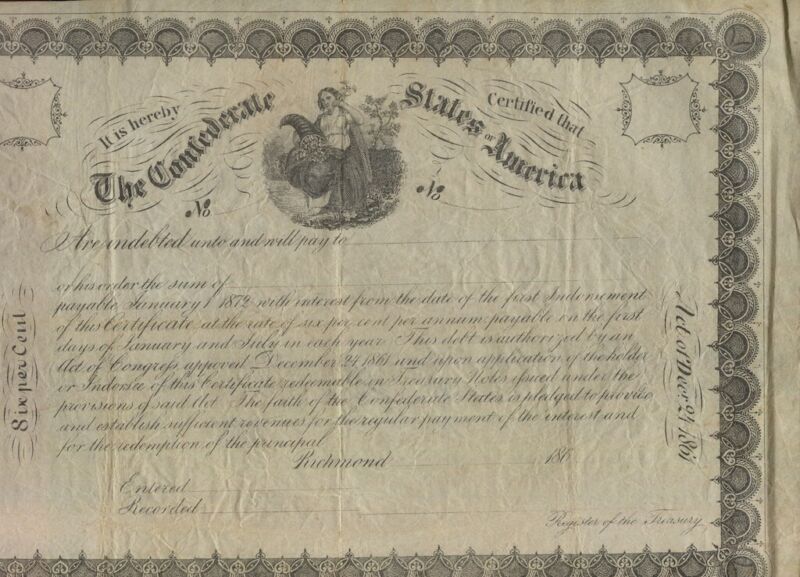 It is hereby Certified that
The Confederate States of America
No No
Are indebted unto and will pay to
or his order the sum of
payable, January 1 1872 with interest from the date of the first Indorsement
of this Certificate, at the rate of six per cent per annum payable on the first
days of January and July in each year. This debt is authorized by an
Act of Congress approved December 24 1861 and upon application of the holder
or Indorsee of this Certificate redeemable in Treasury Notes issued under the
provisions of said Act. The faith of the Confederate States is pledged to provide
and establish sufficient revenues for the regular payment of the interest and
for the redemption of the principal
Richmond 186
Entered
Recorded
Register of the Treasury
Six per Cent
Act of Decr 24 1861